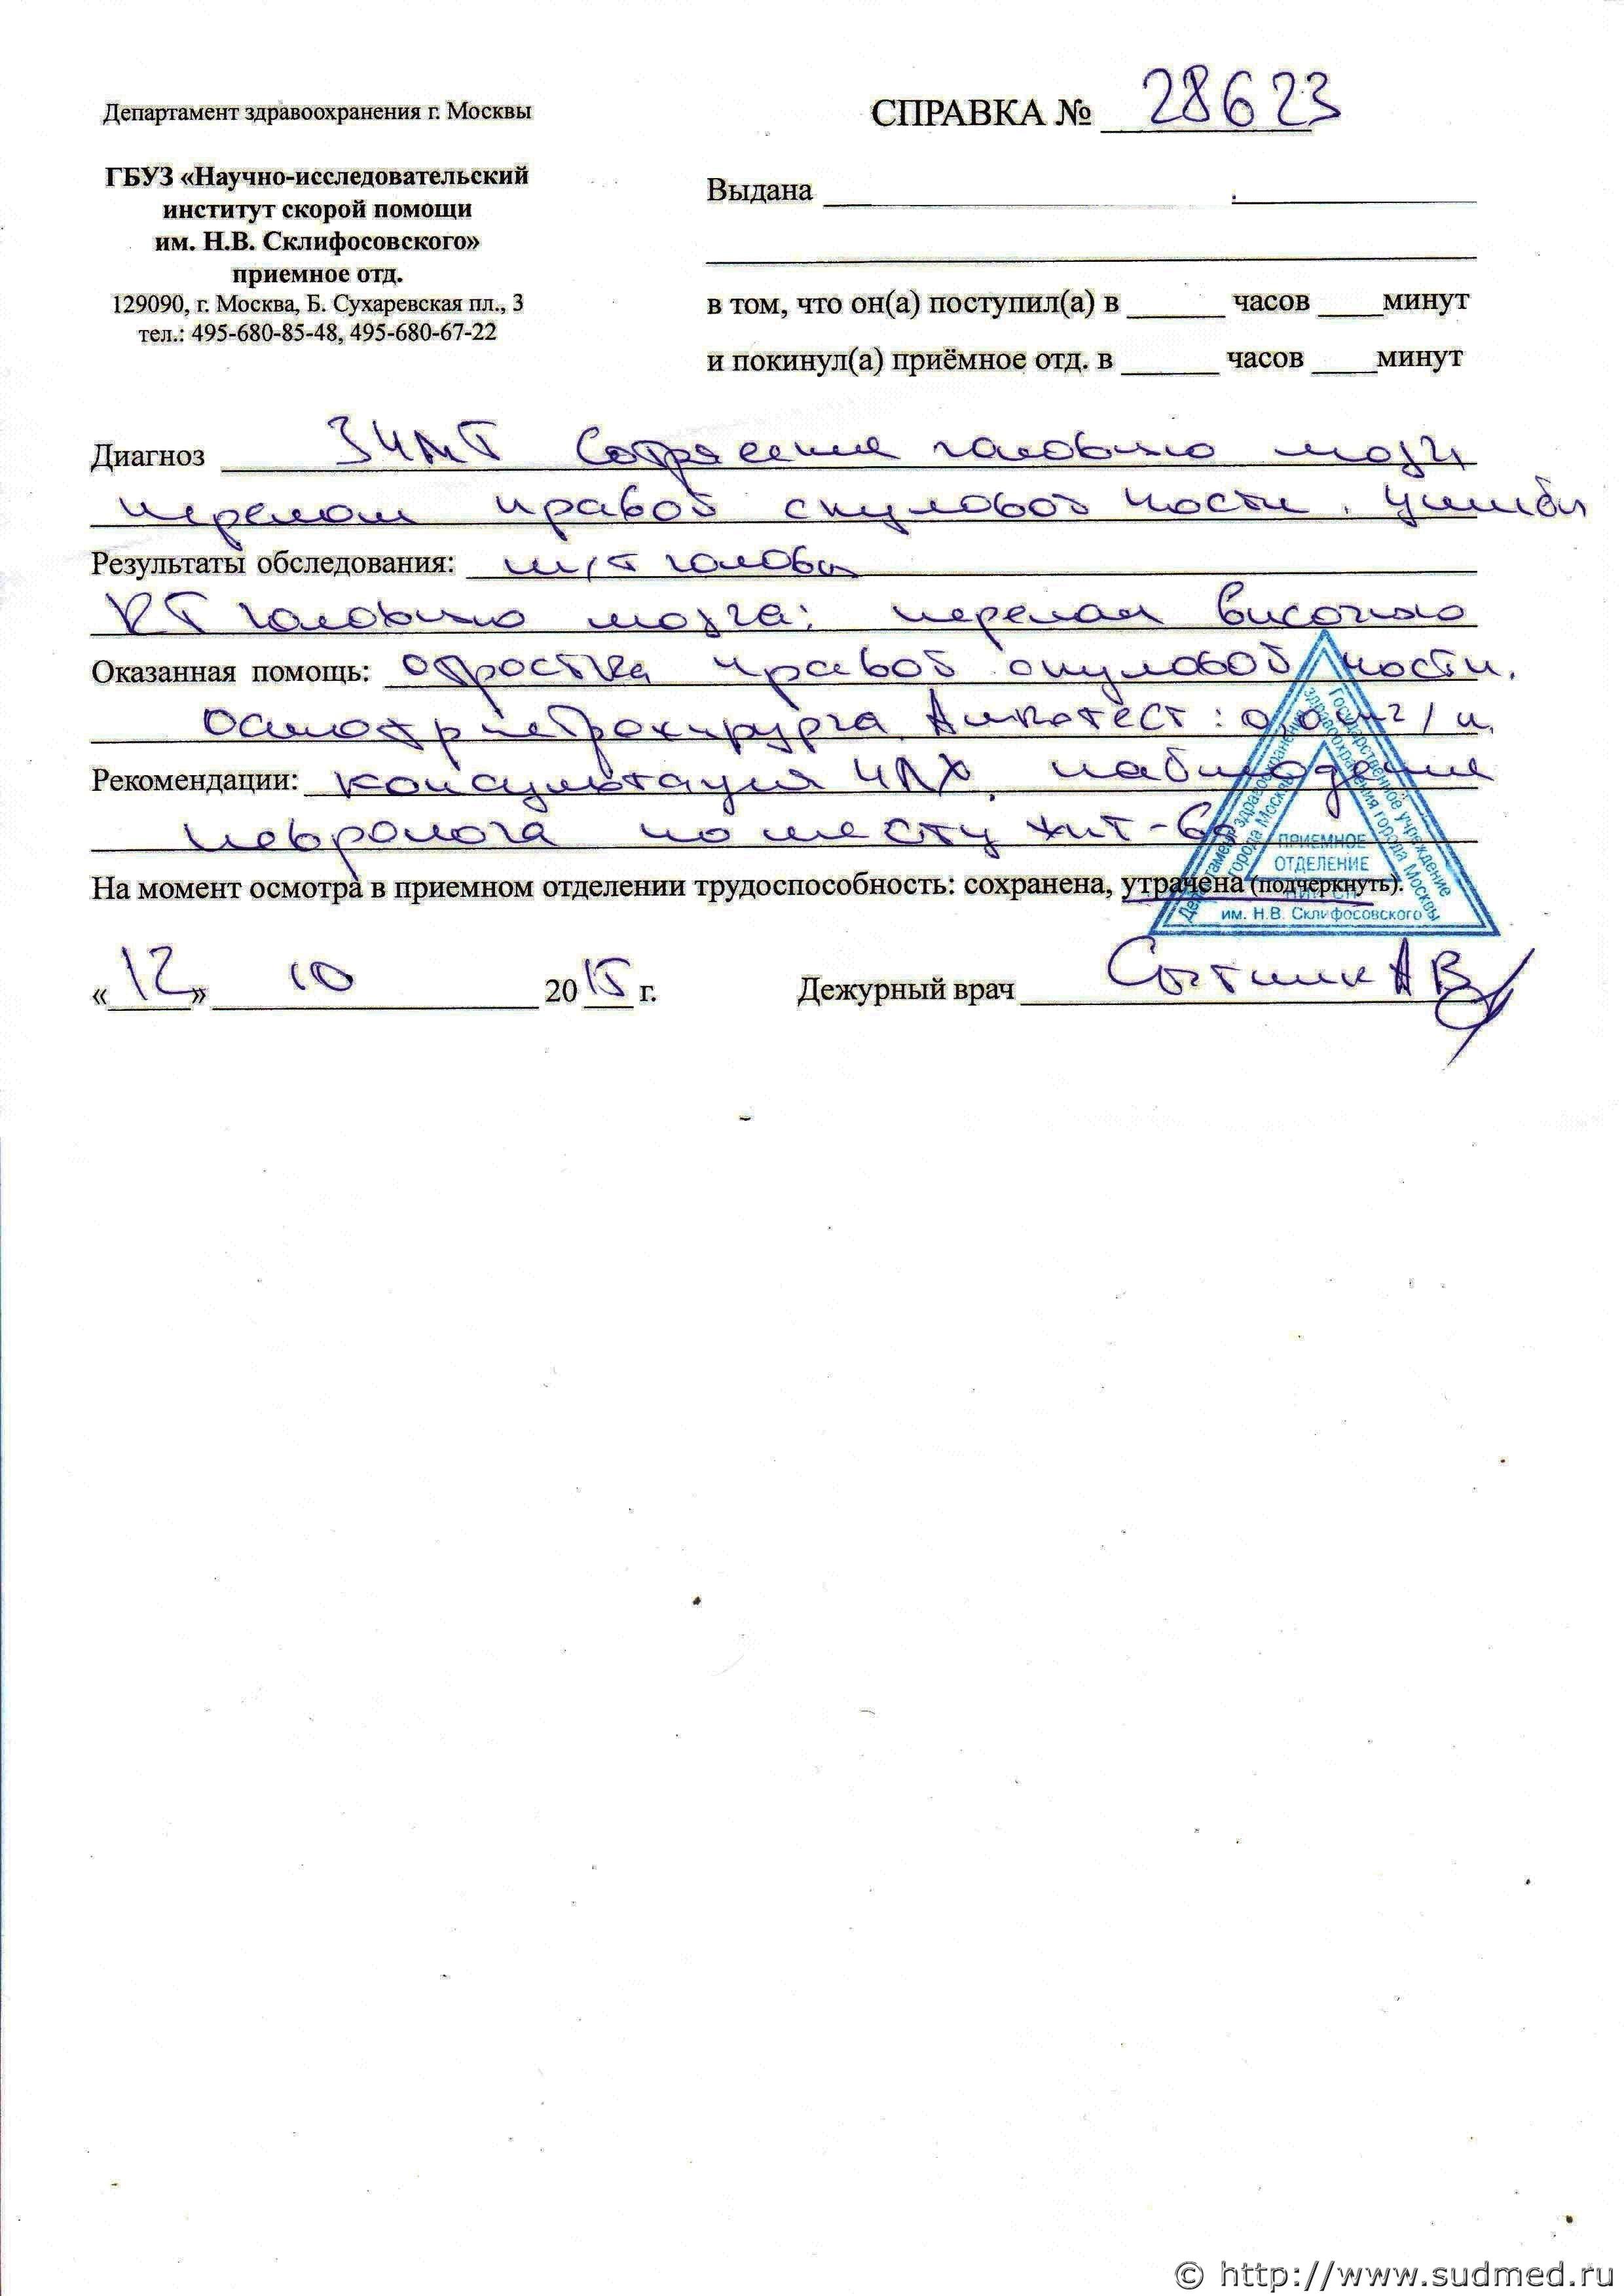 Департамент здравоохранения г. Москвы
ГБУЗ «Научно-исследовательский
институт скорой помощи
им. Н.В. Склифосовского»
приемное отд.
129090, г. Москва, Б. Сухаревская пл., 3
тел.: 495-680-85-48, 495-680-67-22
СПРАВКА № 28623
Выдана
в том, что он(а) поступил(а) в ______ часов ____минут
и покинул(а) приёмное отд. в ______ часов ____минут
Диагноз ЗЧМТ Сотрясение головного мозга
перелом правой скуловой кости. Ушибы
Результаты обследования: м/т головы
КТ головного мозга: перелом височного
Оказанная помощь: отростка правой скуловой кости.
Осмотр нейрохирурга. Алкотест: 0,0 мг/л.
Рекомендации: консультация ЧЛХ, наблюдение
невролога по месту жит-ва
На момент осмотра в приемном отделении трудоспособность: сохранена, утрачена (подчеркнуть).
«12» 10 2015 г.
Дежурный врач Сытник АВ
Департамент здравоохранения города Москвы
Государственное учреждение здравоохранения города Москвы
ПРИЕМНОЕ
ОТДЕЛЕНИЕ
им. Н.В. Склифосовского
© http://www.sudmed.ru